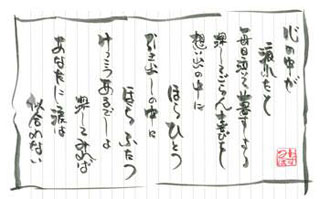 心の中が
れたと
毎日泣いて暮すより
探してごらん喜びを
想い出の中に
ほらひとつ
引き出しの中に
ほらふたつ
けっこうあるでしょ
探してみれば
あなたに涙は
似合わない